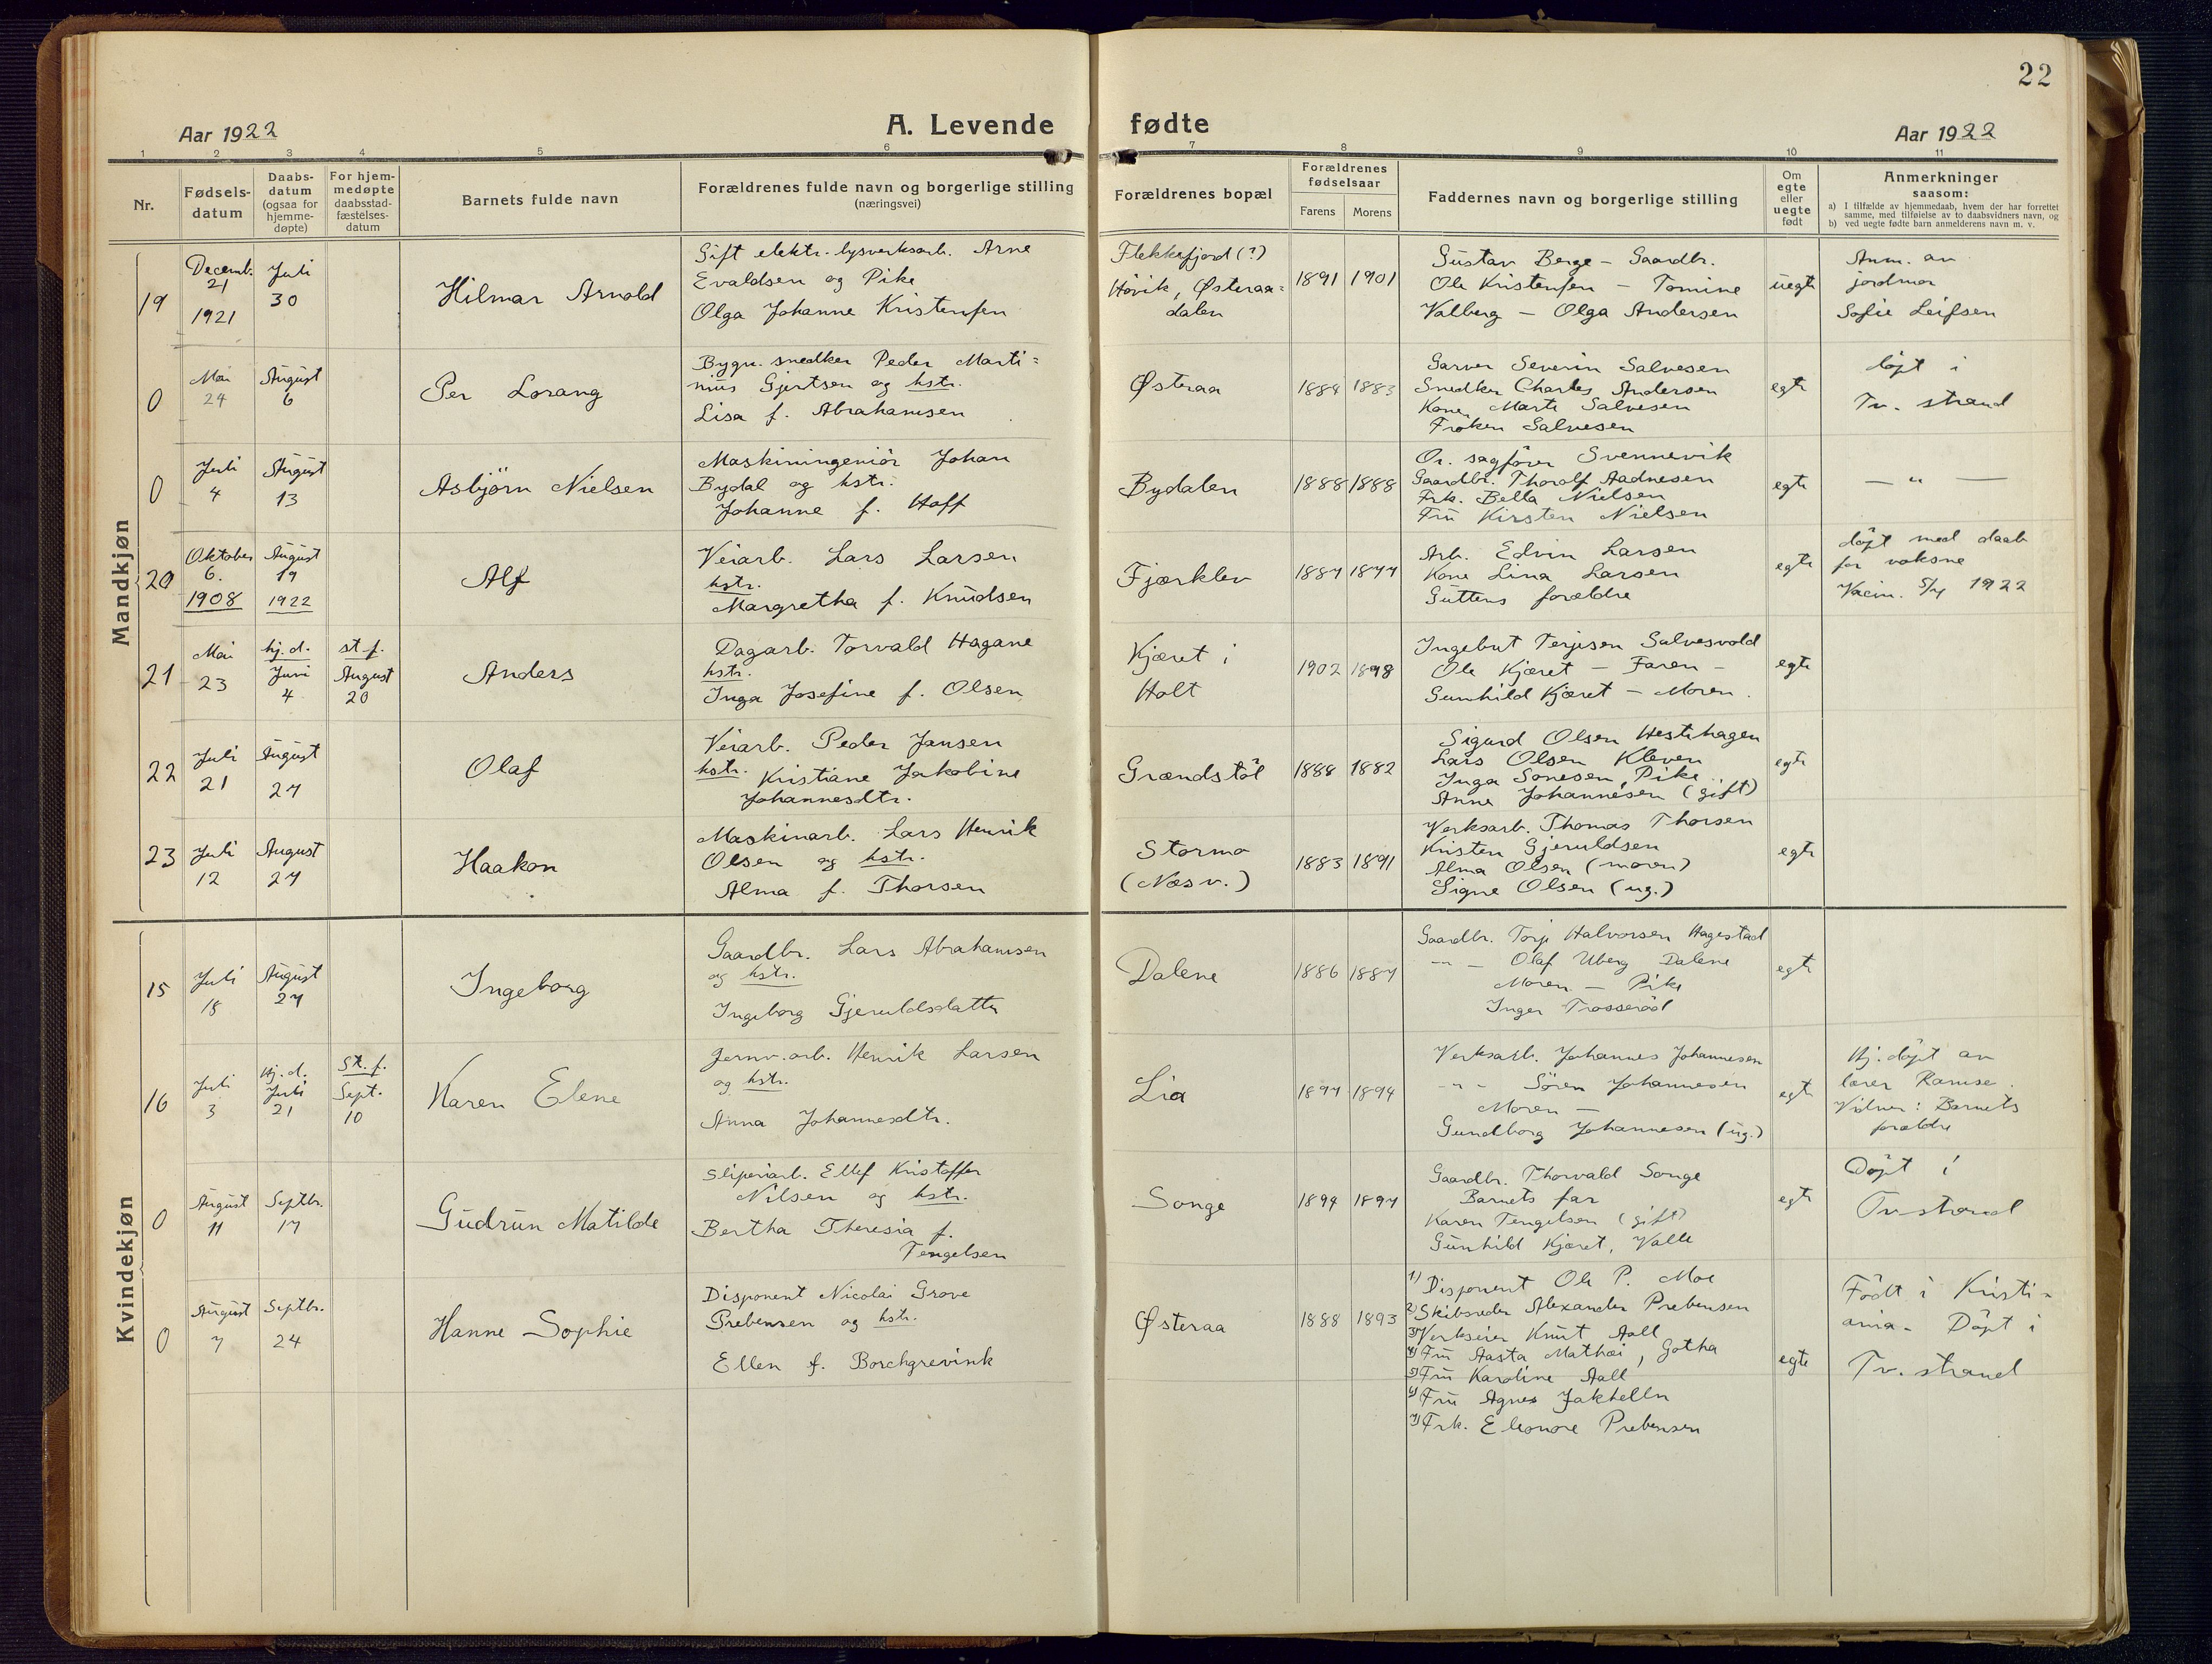 22
Aar 1922
A. Levende fødte
Aar 1922
1 2 3 4 5 6 7 8 9 10 11
Nr.
Fødsels-
datum
Daabs-
datum
(ogsaa for
hjemme-
døpte)
For hjem-
medøpte
daabsstad-
fæstelses-
datum
Barnets fulde navn
Forældrenes fulde navn og borgerlige stilling
(næringsvei)
Forældrenes bopæl
Forældrenes
fødselsaar
Farens Morens
Faddernes navn og borgerlige stilling
Om
egte
eller
uegte
født
Anmerkninger
saasom:
a) I tilfælde av hjemmedaab, hvem der har forrettet
samme, med tilføielse av to daabsvidners navn, og
b) ved uegte fødte barn anmelderens navn m. v.
Mandkjøn
19
Decemb.
21
1921
Juli
30
Hilmar Arnold
Gift elektr. lysverksarb. Arne
Evaldsen og Pike
Olga Johanne Kristensen
Flekkefjord (?)
Høvik, Østeraa=
dalen
1891 1901
Gustav Berge - Gaardbr.
Ole Kristensen - Tomine
Valberg - Olga Andersen
uegte
Anm. av
jordmor
Sofie Leifsen
0
Mai
24
August
6
Per Lorang
Bygn. snedker Peder Marti=
nius Gjertsen og hstr.
Lisa f. Abrahamsen
Østeraa
1884 1883
Garver Severin Salvesen
Snedker Charles Andersen
Kone Marti Salvesen
Frøken Salvesen
egte
døpt i
Tv. strand
0
Juli
4
August
13
Asbjørn Nielsen
Maskiningeniør Johan
Bydal og hstr.
Johanne f. Hoff
Bydalen
1888 1888
Or. sagfører Svennevik
Gaardbr. Thoralf Aadnesen
Frk. Bella Nielsen
Fru Kirsten Nielsen
egte
— " —
20
Oktober
6.
1908
August
19
1922
Alf
Veiarb. Lars Larsen
hstr.
Margretha f. Knudsen
Fjærklev
1887 1877
Arb. Edvin Larsen
Kone Lina Larsen
Guttens forældre
egte
døpt med daab
for voksne
Vacin. 5/7 1922
21
Mai
23
hj. d.
Juni
4
st. f.
August
20
Anders
Dagarb. Torvald Hagane
hstr.
Inga Josefine f. Olsen
Kjæret i
Holt
1902 1898
Ingebret Terjesen Salvesvold
Ole Kjæret - Faren -
Gunhild Kjæret - Moren.
egte
22
Juli
21
August
27
Olaf
Veiarb. Peder Jansen
hstr. Kristiane Jakobine
Johannesdtr.
Grændstöl
1888 1882
Sigurd Olsen Hestehagen
Lars Olsen Kleven
Inga Sonesen, Pike
Anne Johannesen (gift)
egte
23
Juli
12
August
27
Haakon
Maskinarb. Lars Henrik
Olsen og hstr.
Alma f. Thorsen
Stormo
(Næsv.)
1883 1891
Verksarb. Thomas Thorsen
Kristen Gjeruldsen
Alma Olsen (moren)
Signe Olsen (ug.)
egte
Kvindekjøn
15
Juli
18
August
27
Ingeborg
Gaardbr. Lars Abrahamsen
og hstr.
Ingeborg Gjeruldsdatter
Dalene
1886 1887
Gaardbr. Torje Halvorsen Hagestad
— " — Olaf Uberg Dalene
Moren — Pike
Inger Trosseröd
egte
16
Juli
3
Hj. d.
Juli
21
St. f.
Sept.
10
Karen Elene
Jernv. arb. Henrik Larsen
og hstr.
Anna Johannesdtr.
Lia
1897 1894
Verksarb. Johannes Johannesen
— " — Søren Johannesen
Moren —
Gundborg Johannesen (ug.)
egte
Hj. døpt av
lærer Ramse.
Vidner: Barnets
forældre
0
August
11
Septbr.
17
Gudrun Matilde
Sliperiarb. Ellef Kristoffer
Nilsen og hstr.
Bertha Theresia f.
Tengelsen
Songe
1894 1897
Gaardbr. Thorvald Songe
Barnets far
Karen Tengelsen (gift)
Gunhild Kjæret, Valle
egte
Døpt i
Tv. strand
0
August
7
Septbr.
24
Hanne Sophie
Disponent Nicolai Grove
Prebensen og hstr.
Ellen f. Borchgrevink
Østeraa
1888 1893
1) Disponent Ole P. Moe
2) Skibsreder Alexander Prebensen
3) Verkseier Knut Aall
4) Fru Aasta Mathæi, Gotha
5) Fru Karoline Aall
6) Fru Agnes Jakhelln
7) Frk. Eleonore Prebensen
egte
Født i Kristi-
ania. Døpt i
Tv. strand